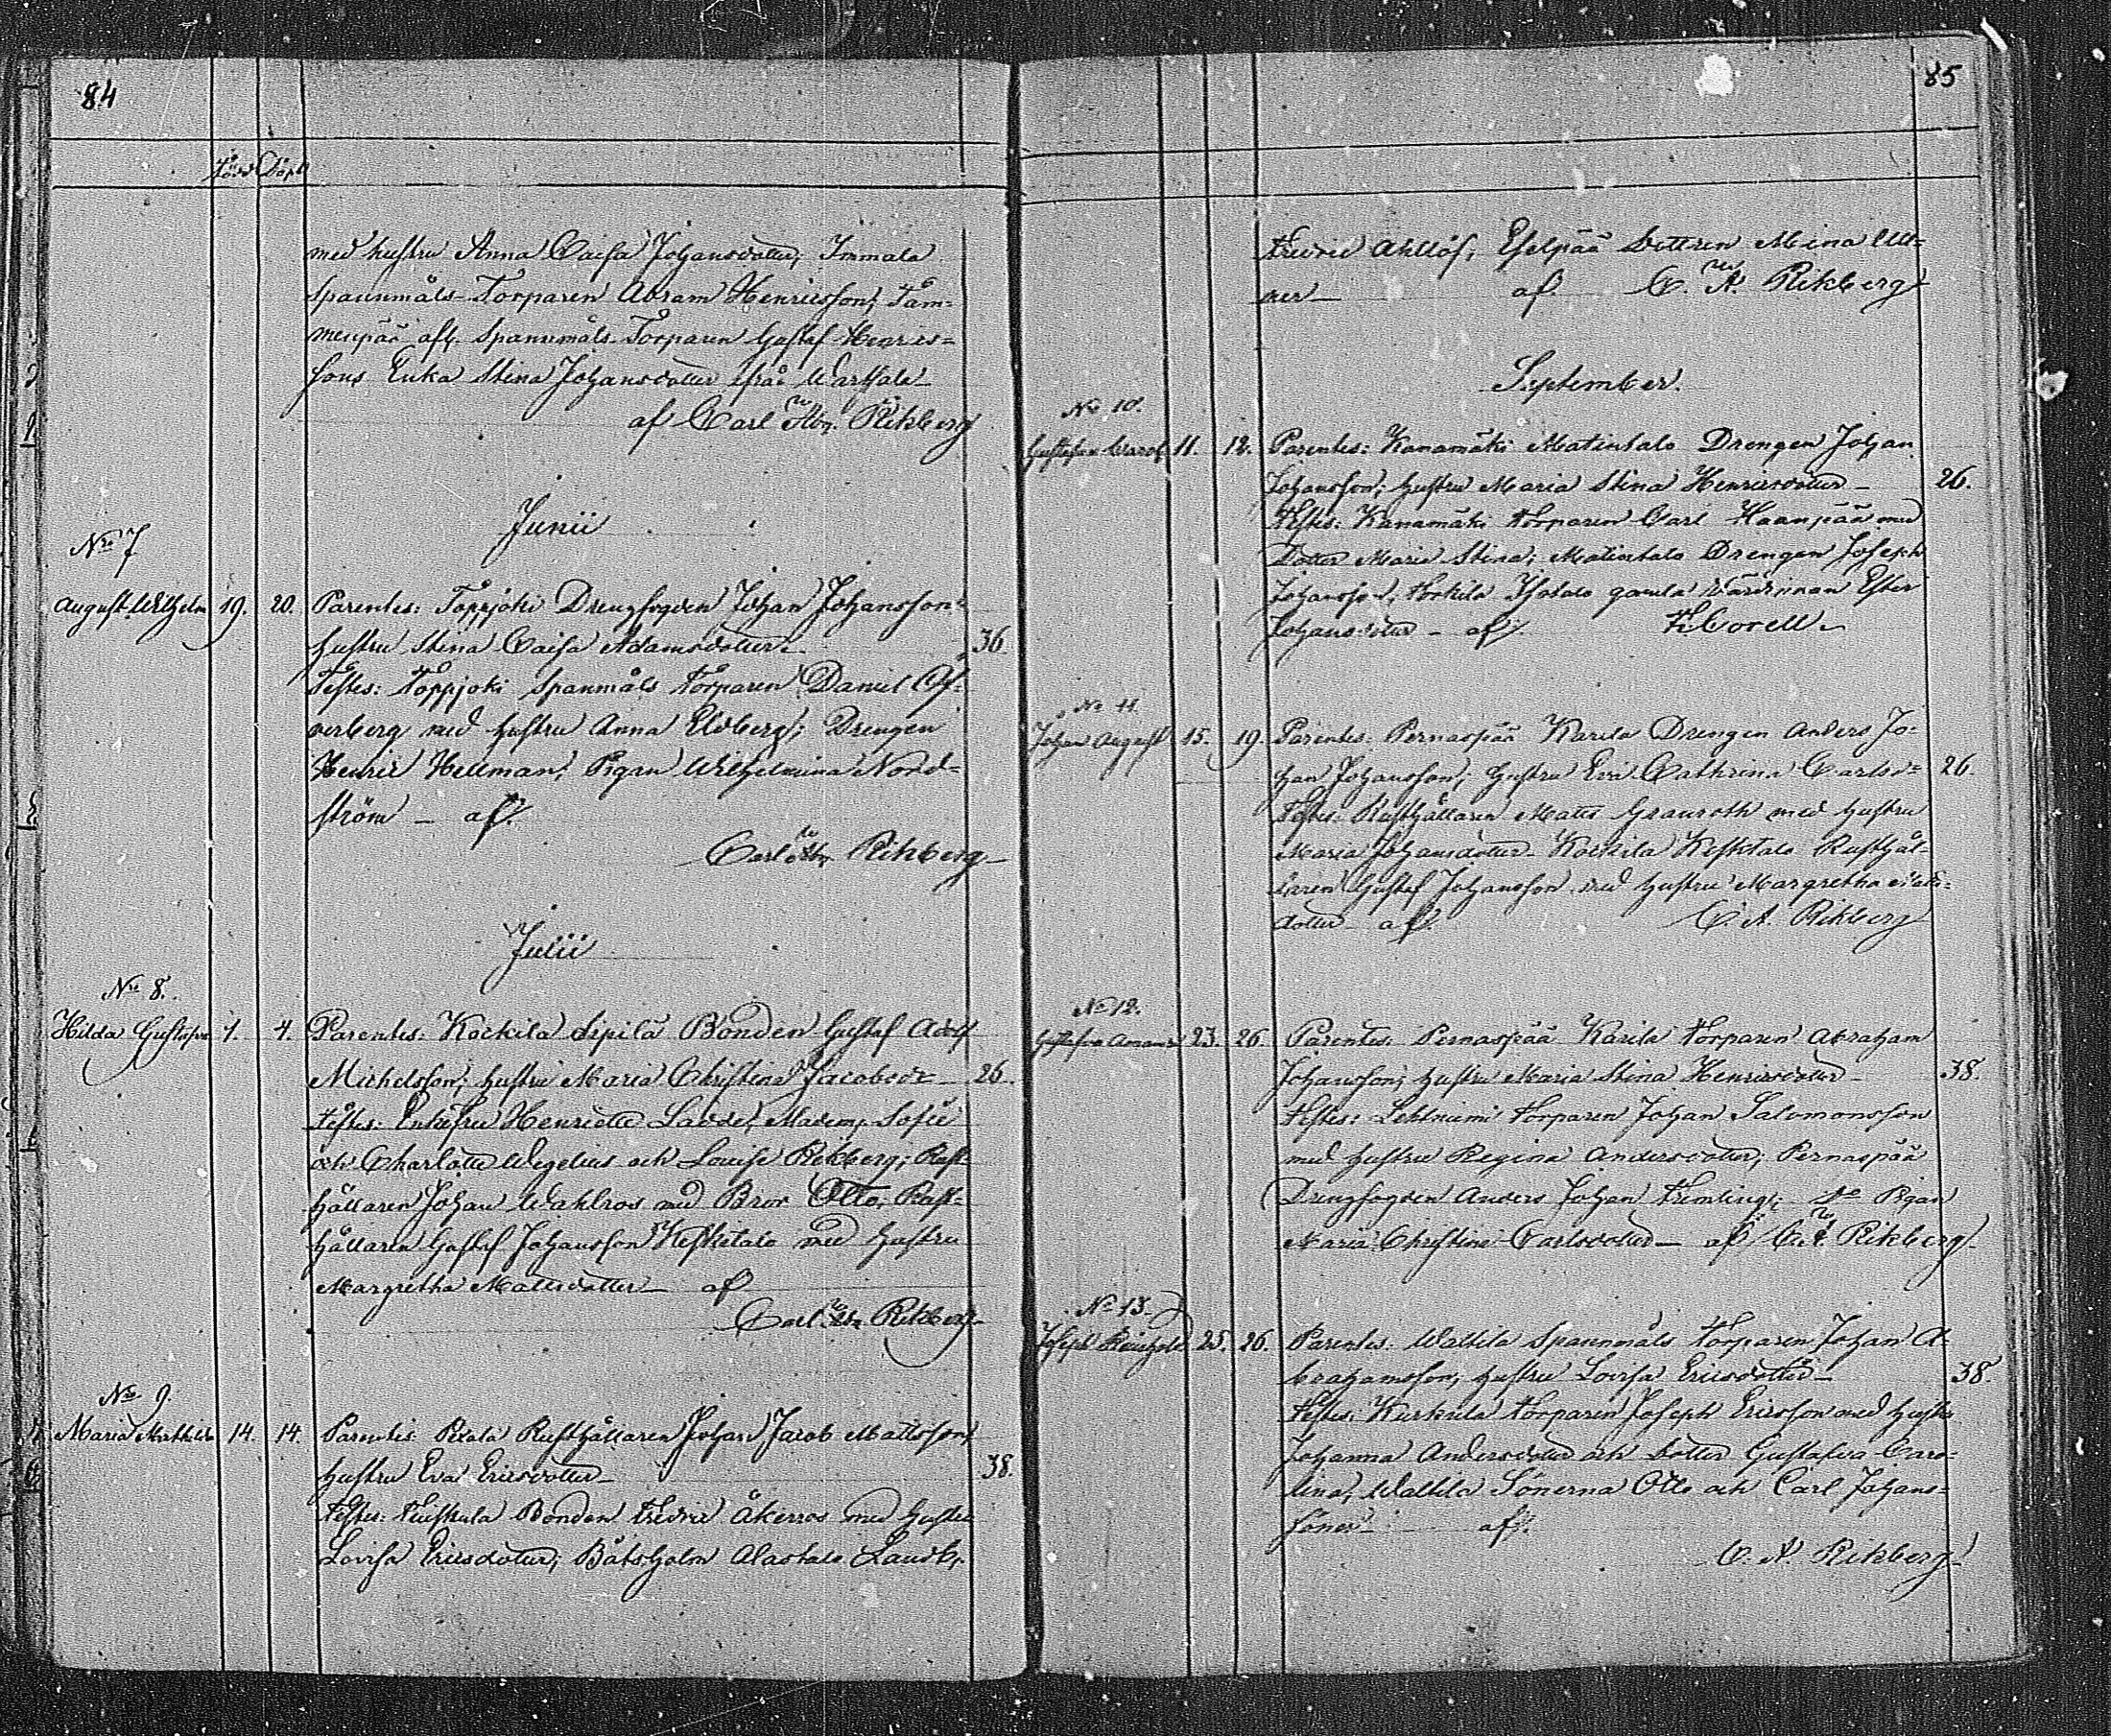 84
Född Döpt
med hustru Anna Caisa Johansdotter; Immala
Spannmåls-Torparen Abram Henricsson; Tam-
menpää afl. Spannmåls-Torparen Gustaf Henrics-
sons Enka Stina Johansdotter ifrån
af Carl Abr. Rikberg
Junii
No 7
August Wilhelm 19. 20. Parentes: Toppjoki Drengfogden Johan Johansson;
hustru Stina Caisa Adamsdotter 36.
Testes: Toppjoki Spanmåls Torparen Daniel Öf-
verberg med hustru Anna Elvberg; Drengen
Henric Hellman, Pigan Wilhelmina Nord-
ström — af.
Carl Abr. Rikberg
Julii
No 8.
Hilda Gustafva 1. 4. Parentes: Kockila Sipilä Bonden Gustaf Adolf
Michelsson; hustru Maria Christina Jacobsdr 26.
Testes: Enkefru Henriette Madem. Sofie
och Charlotte Wegelius och Louise Rikberg; Rust-
hållaren Johan Wahlroos med Bror Otto, Rust-
hållaren Gustaf Johansson Keskitalo med hustru
Margretha Mattsdotter — af
Carl Abr. Rikberg
No 9.
Maria Mathilda 14. 14. Parentes: Rusthållaren Johan Jacob Mattsson,
hustru Eva Ericsdotter 38.
Testes: Bonden Fredric Åkerroos med hustru
Lovisa Ericsdotter; Båtsholm Alastalo
85
Fredric Ahllöf, Eselpää Dottren Mina Ull-
ner — af. C. A. Rikberg
September.
No 10.
11. 12. Parentes: Kanamäki Matintalo Drengen Johan
Johansson; hustru Maria Stina Henricsdotter — 26.
Testes: Kanamäki Torparen Carl Haanpää med
Dotter Maria Stina; Matintalo Drengen Joseph
Johansson, Isotalo gamla Värdinnan Ester
Johansdotter — af
No 11.
Johan August 15. 19. Parentes: Pernaspää Karila Drengen Anders Jo-
han Johansson; hustru Eva Cathrina Carlsdr 26.
Testes: Rusthållaren Matts Granroth med hustru
Maria Johansdotter — Kockila Keskitalo Rusthål-
laren Gustaf Johansson med hustru Margretha Matts-
dotter af. C. A. Rikberg
No 12.
Gustafva Amanda 23. 26. Parentes: Pernaspää Karila Torparen Abraham
Johansson; hustru Maria Stina Henricsdotter — 38.
Testes: Lehtniemi Torparen Johan Salomonsson
med hustru Regina Andersdotter; Pernaspää
Drengfogden Anders Johan Fremling; Do Pigan
Maria Christina Carlsdotter — af C. A. Rikberg
No 13.
Joseph Reinhold 25. 26. Parentes: Waltila Spannmåls Torparen Johan A-
brahamsson, hustru Lovisa Ericsdotter — 38.
Testes: Kurkula Torparen Joseph Ericsson med hustru
Johanna Andersdotter och dotter Gustafva Caro-
lina, Waltila Sönerna Otto och Carl Johans-
söner — af.
C. A. Rikberg